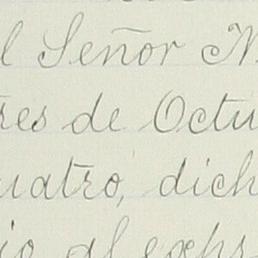 l Señor N
res de Octu
uatro, dich
io al exps